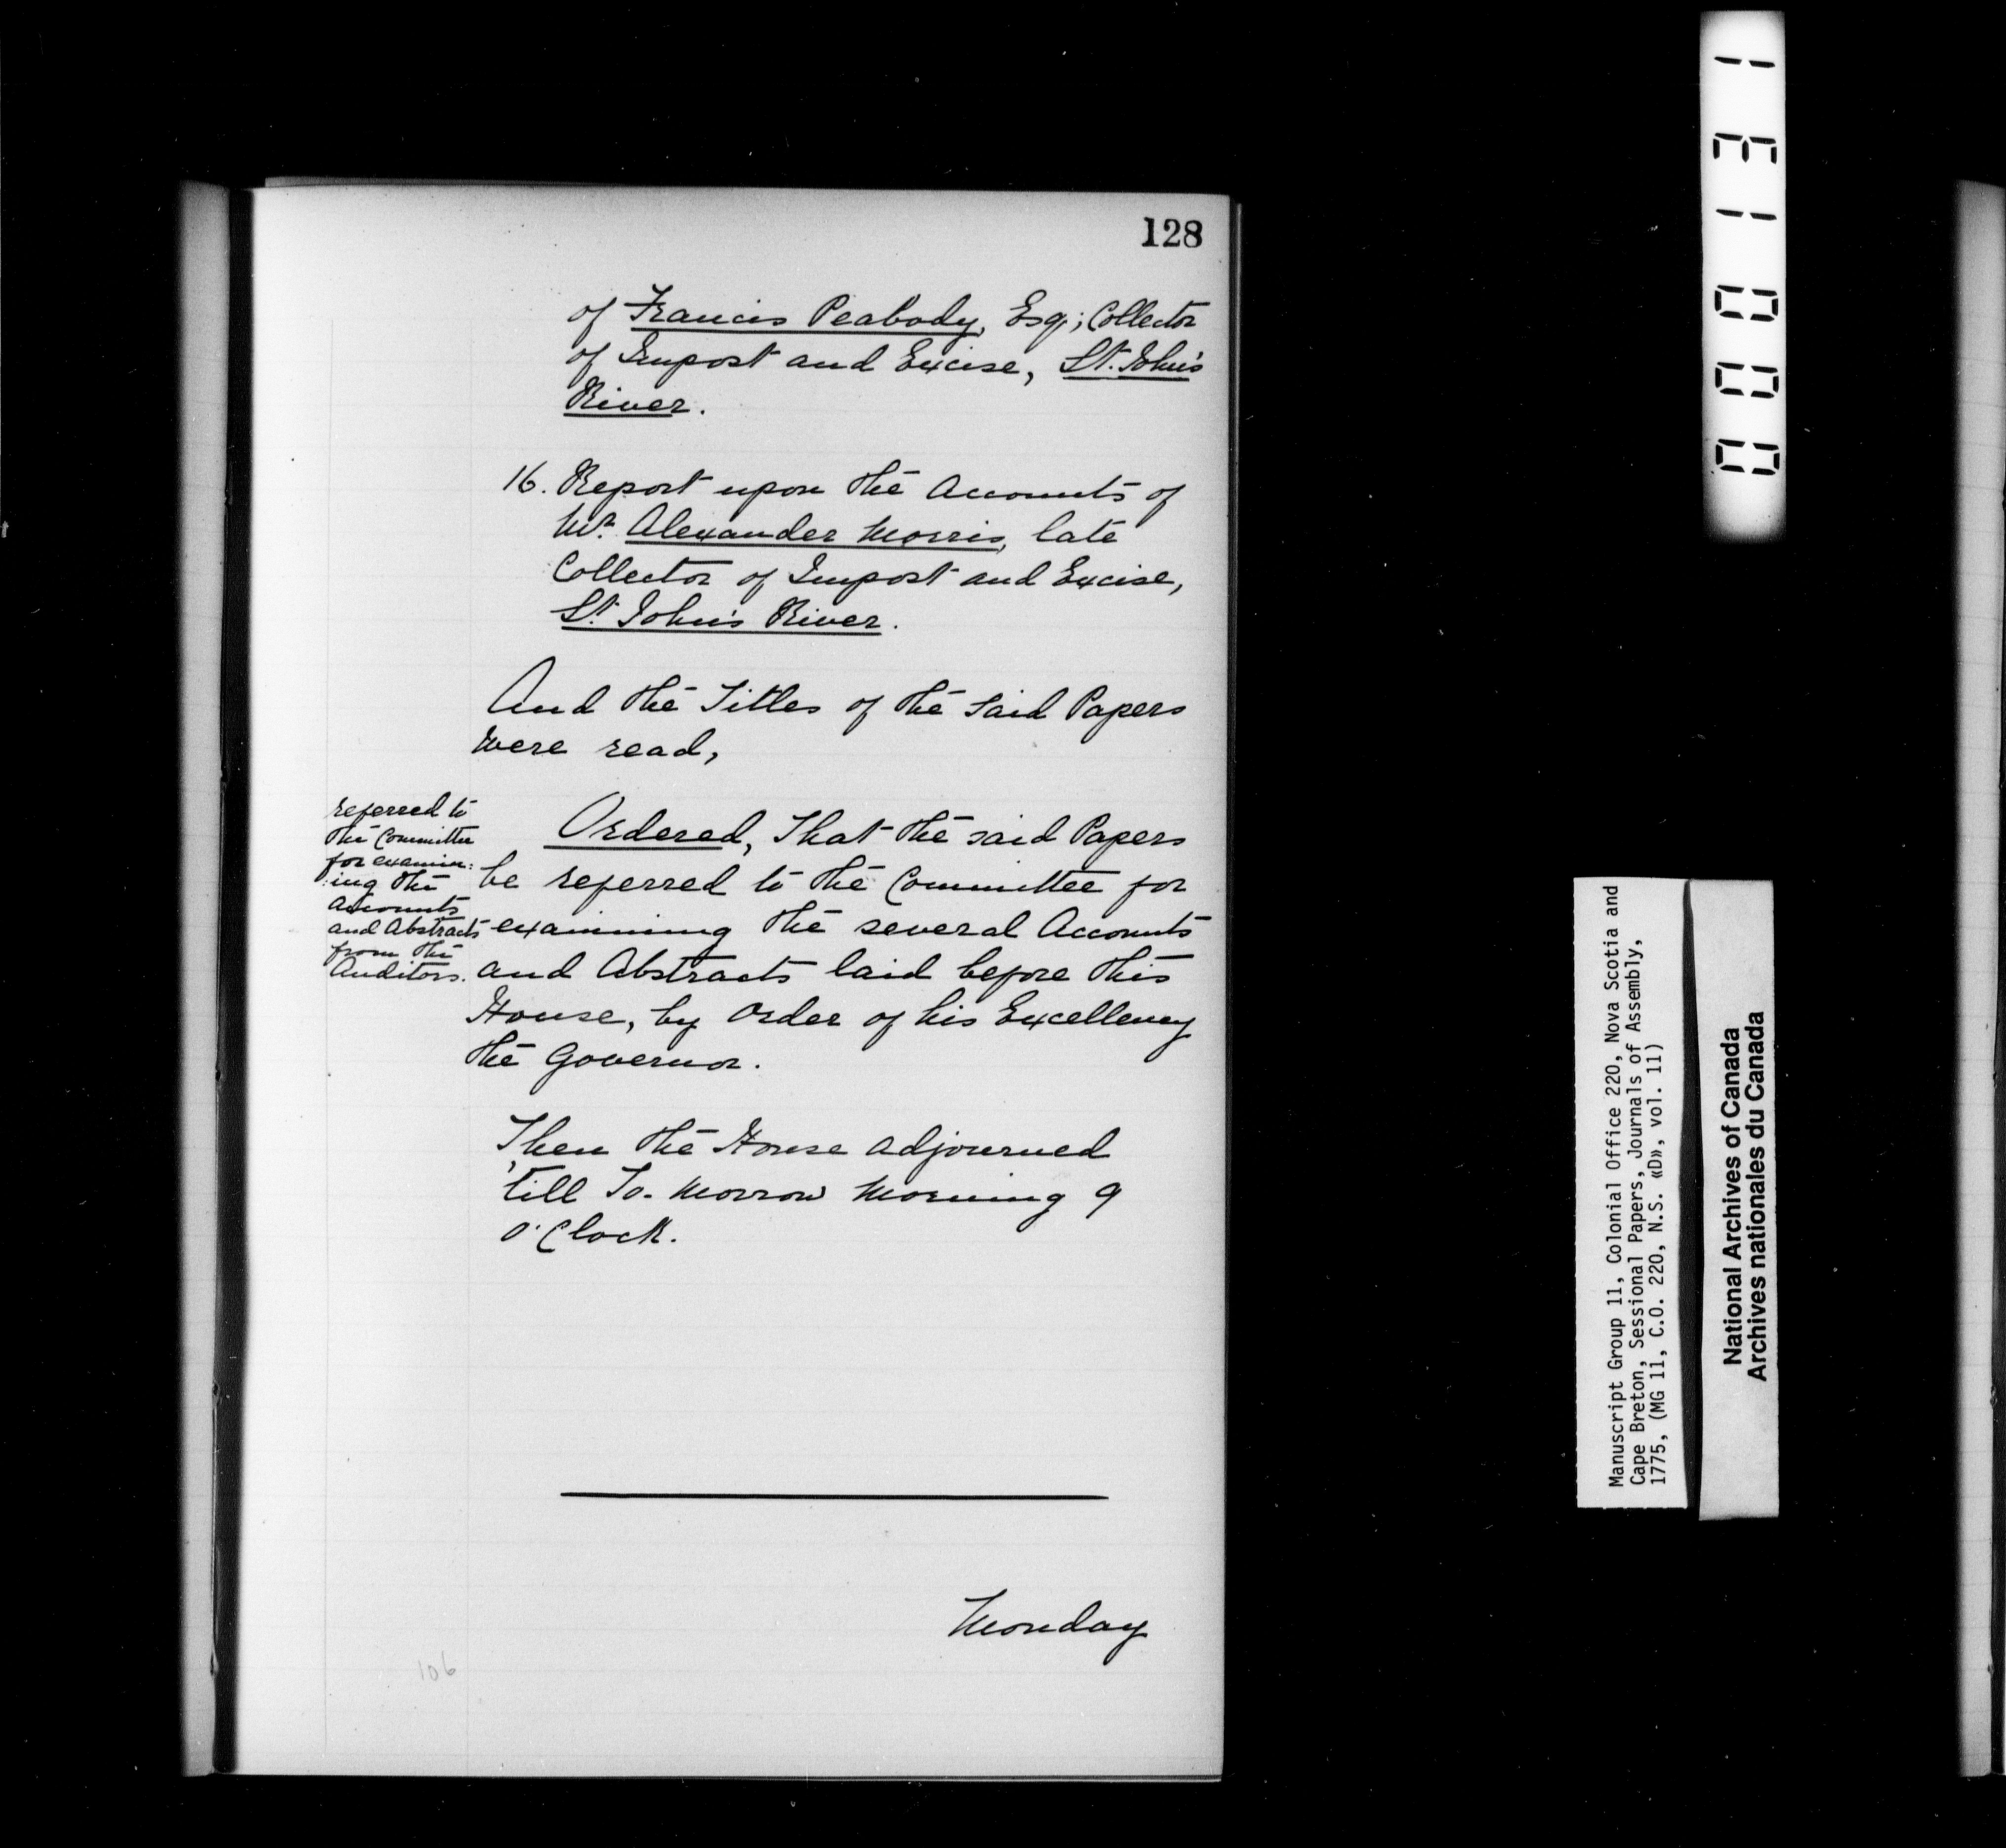 128
of Francis Peabody, Esq; Collector
of Impost and Excise, St. John's
River.
16. Report upon the Accounts of
Mr. Alexander Morris, late
Collector of Impost and Excise,
St. John's River.
And the Titles of the said Papers
were read,
referred to
the Committee
for examin:
:ing the
Accounts
and Abstracts
from the
Auditors.
Ordered, That the said Papers
be referred to the Committee for
examining the several Accounts
and Abstracts laid before this
House, by Order of his Excellency
the Governor.
Then the House adjourned
'till To-Morrow Morning 9
O'Clock.
Monday
106
000131
Manuscript Group 11, Colonial Office 220, Nova Scotia and
Cape Breton, Sessional Papers, Journals of Assembly,
1775, (MG 11, C.O. 220, N.S. «D», vol. 11)
National Archives of Canada
Archives nationales du Canada